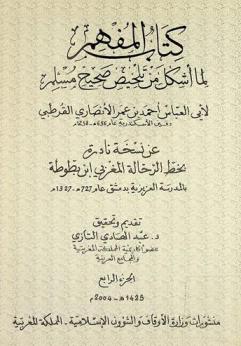 كتاب المفهم
لما أشكل من تلخيص صحيح مسلم
لأبي العباس أحمد بن عمر الأنصاري القرطبي
دفين الأسكندرية عام 656هـ - 1258م
عن نسخة نادرة
بخط الرحالة المغربي ابن بطوطة
بالمدرسة العزيزية بدمشق عام 727هـ - 1327م
تقديم وتحقيق
د. عبد الهادي التازي
عضو أكاديمية المملكة المغربية
والمجامع العربية
الجزء الرابع
1425هـ - 2004م
منشورات وزارة الأوقاف والشؤون الإسلامية - المملكة المغربية